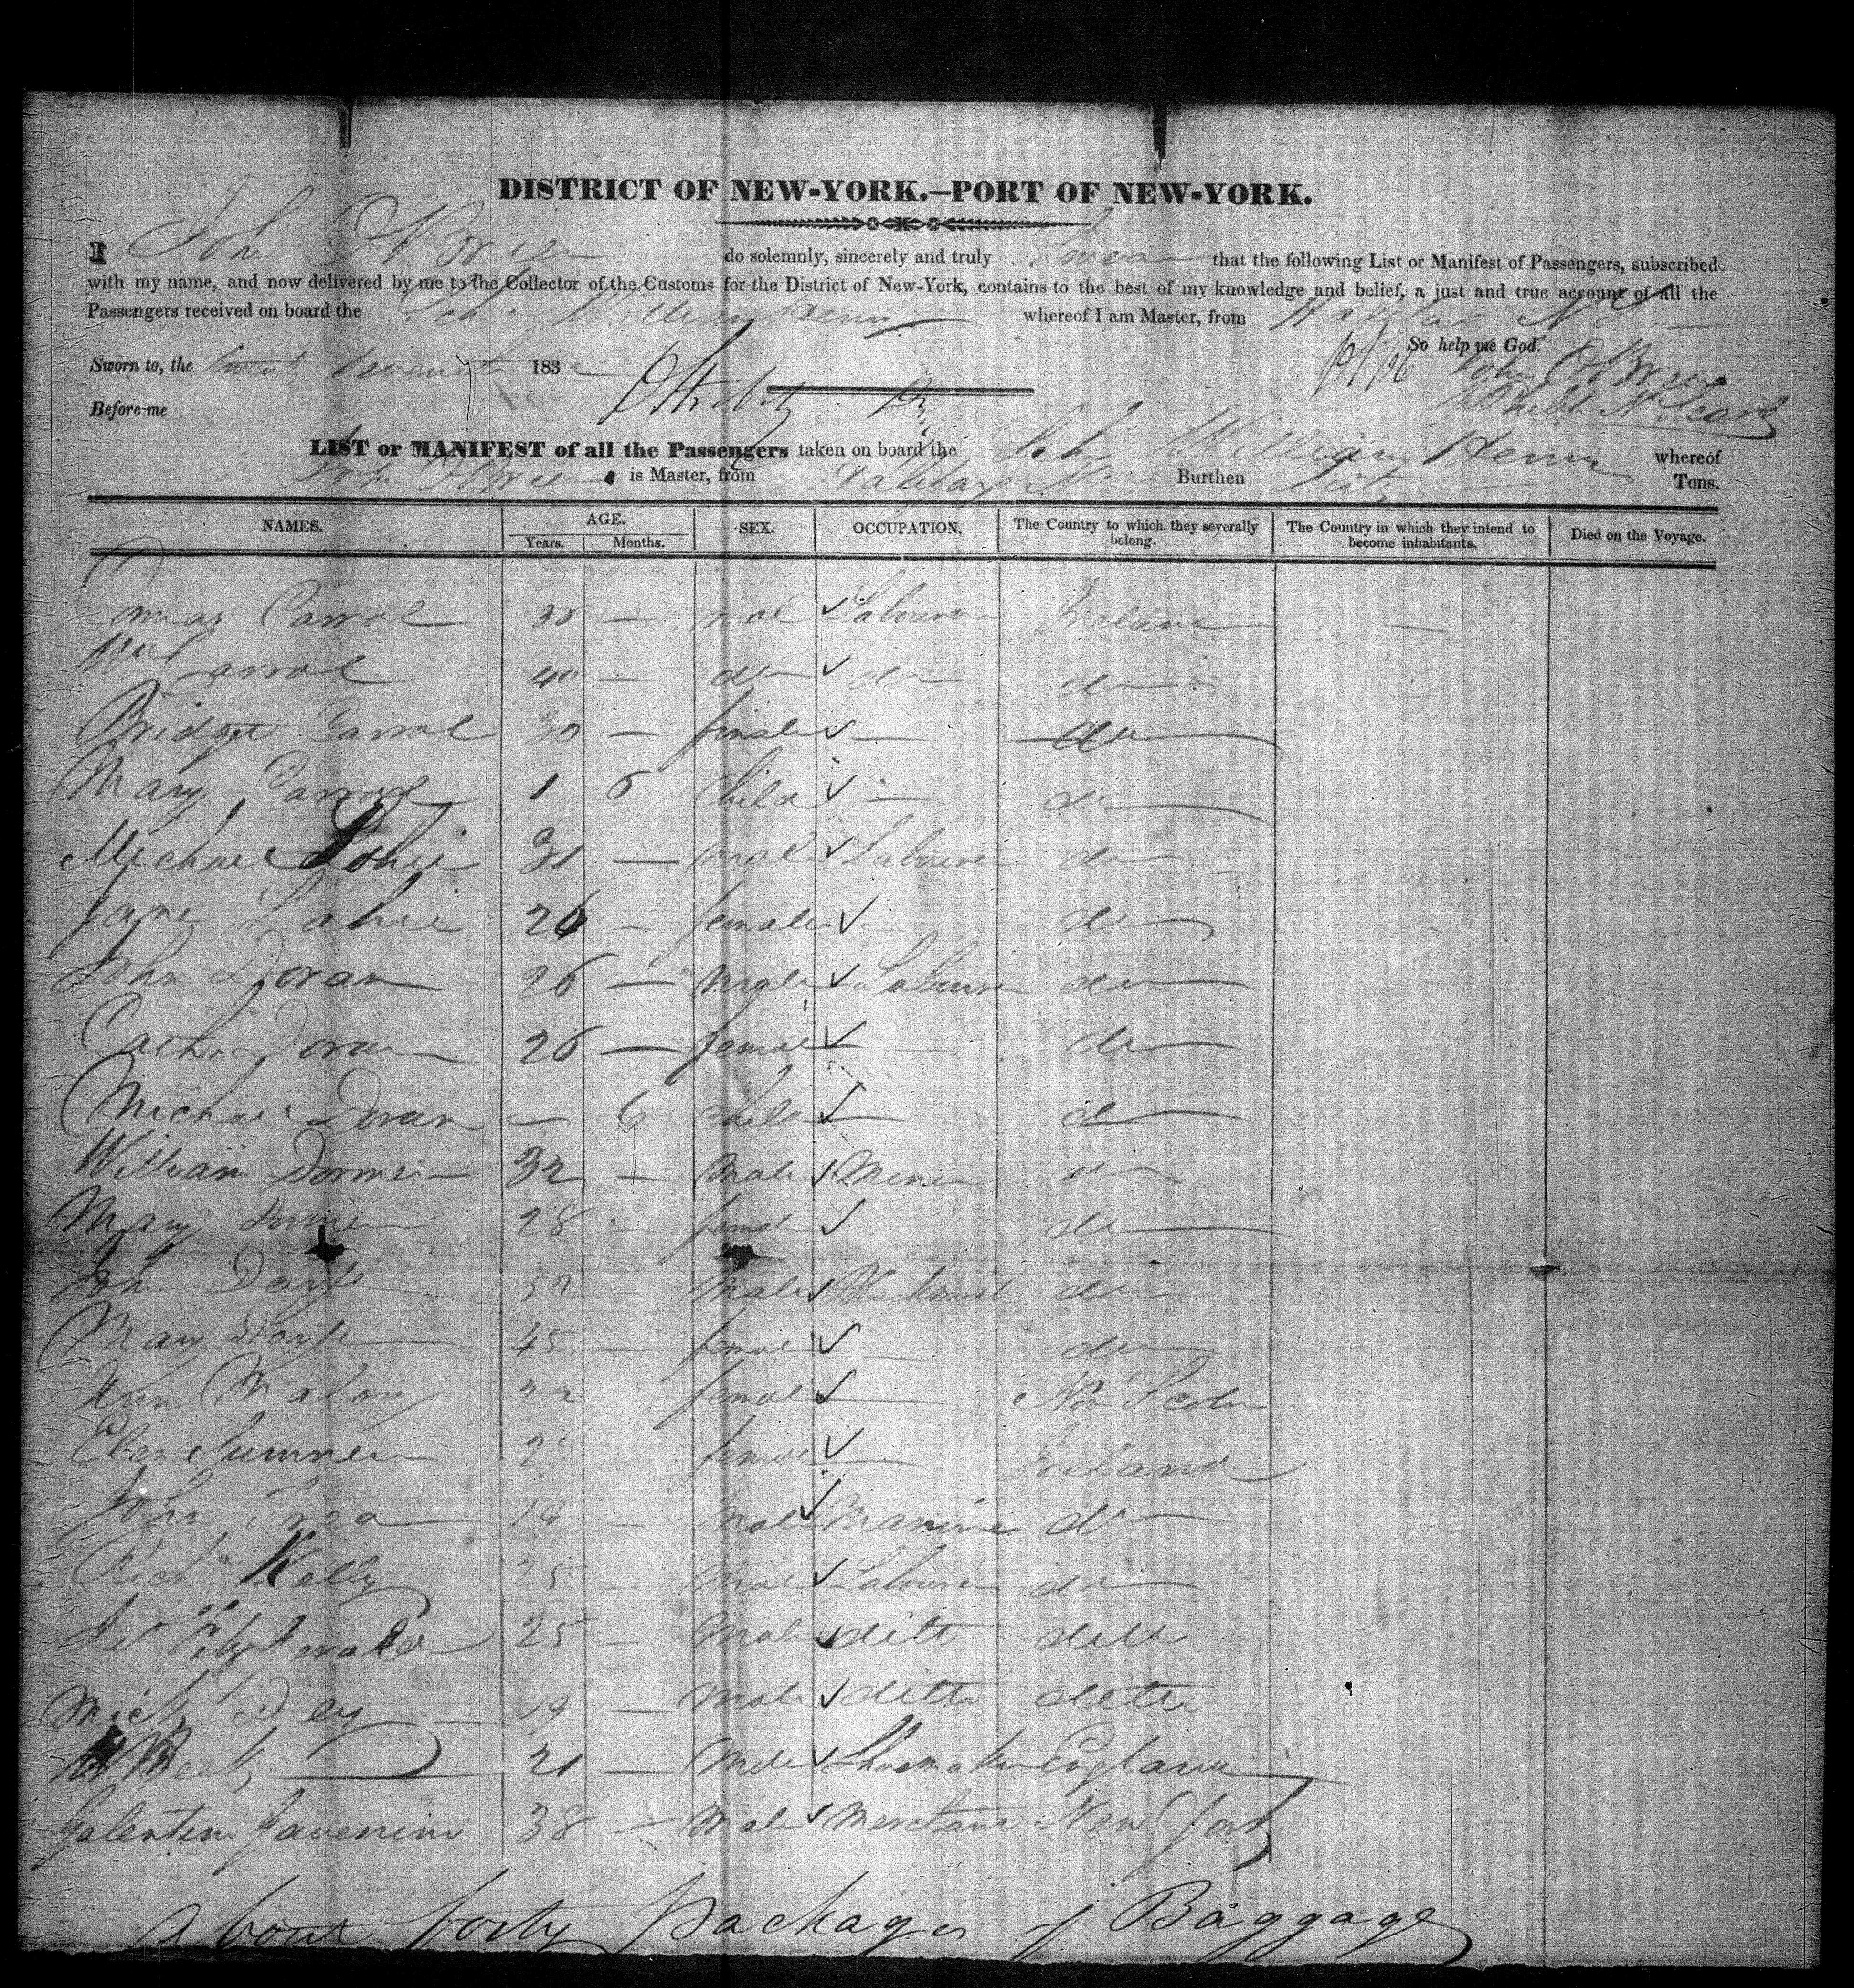 DISTRICT OF NEW-YORK.—PORT OF NEW-YORK.
I John OBrien do solemnly, sincerely and truly Swear that the following List or Manifest of Passengers, subscribed
with my name, and now delivered by me to the Collector of the Customs for the District of New-York, contains to the best of my knowledge and belief, a just and true account of all the
Passengers received on board the Schr William Henry whereof I am Master, from Halifax NS
So help me God.
Sworn to, the twenty seventh 183
John OBrien
Before me
LIST or MANIFEST of all the Passengers taken on board the Schr William Henry whereof
John OBrien is Master, from Halifax NS Burthen Tons.
NAMES. AGE. SEX. OCCUPATION. The Country to which they severally belong. The Country in which they intend to become inhabitants. Died on the Voyage.
Years. Months.
Carrol — Labourer Ireland —
Wm Carrol 40 — do do do
Bridget Carrol 30 — female — do
Mary Carrol 1 6 Child — do
Michael Lahie — male Labourer do
Jane Lahie 26 — female do
John Doran 26 — Male Labourer do
Cath Doran 26 — female — do
Michael Doran — 6 Child — do
William Dormer 32 — Male Miner do
Mary Dormer 28 — female do
John Doyle 52 — Male Blacksmith do
Mary Doyle 45 — female — do
Ann Malony 22 female — Nova Scotia
Elen 29 female — Ireland
John 19 — Male Marine do
Richd Kelly 25 — Male Labourer do
Jas Fitzgerald 25 — Male ditto ditto
Mick Dey 19 — Male ditto ditto
Beck 21 — Male Shoemaker England
38 — Male Merchant New York
About forty packages of Baggage